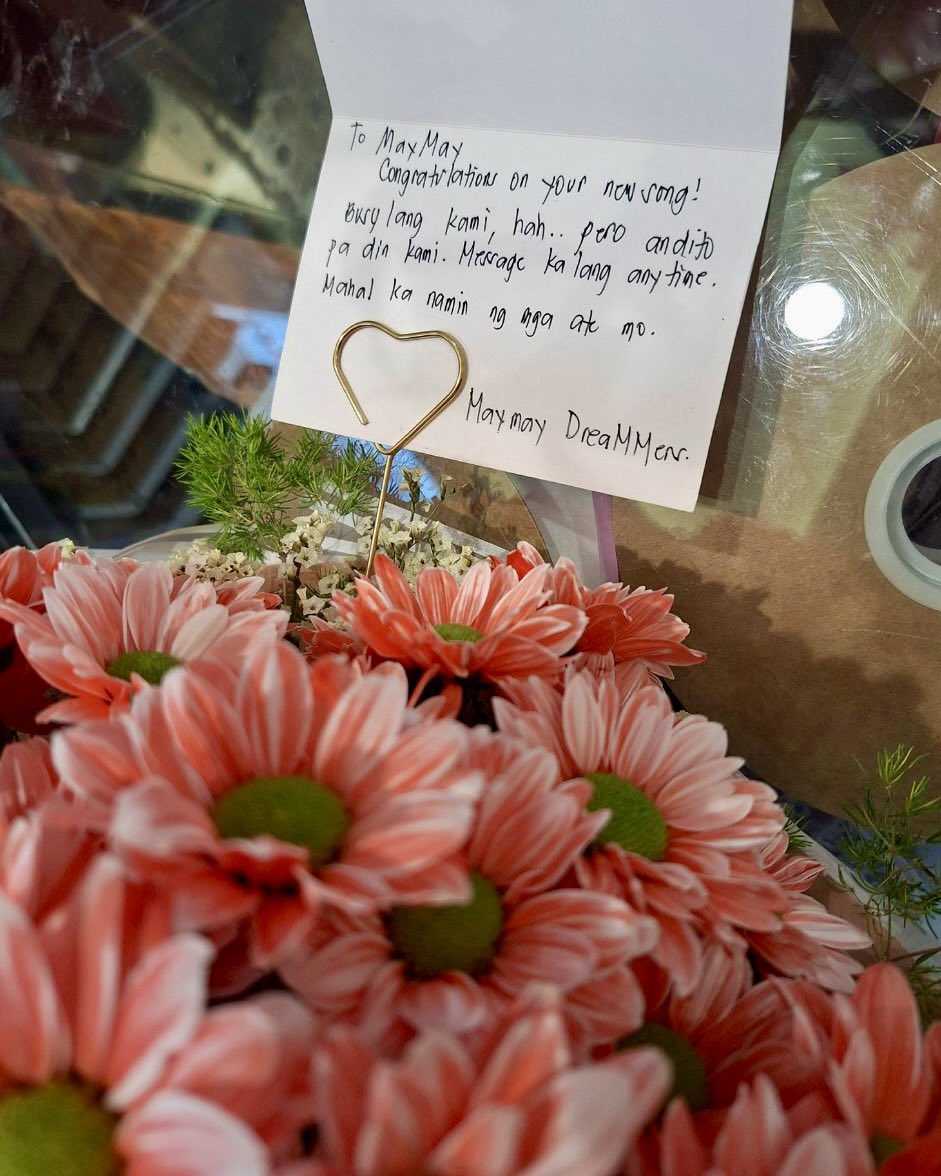 To MayMay
Congratulations on your new song!
Busy lang kami, hah.. pero andito
pa din kami. Message ka lang anytime.
Mahal ka namin ng mga ate mo.
Maymay DreaMMers.